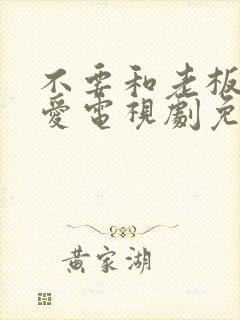 不要和老板
愛電視劇免
黄家湖